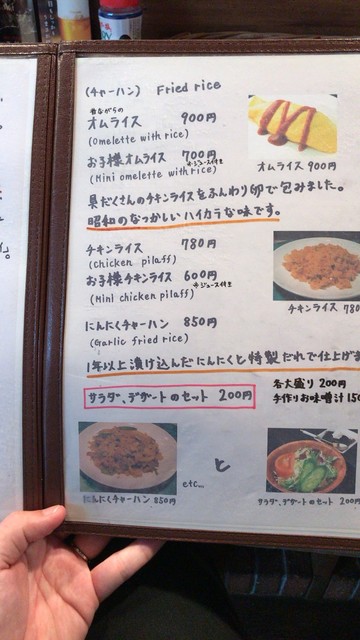 (チャーハン) Fried rice
昔ながらの
オムライス 900円
(Omelette with rice)
お子様オムライス 700円
(Mini omelette with rice) ※ジュース付き
オムライス 900円
具だくさんのチキンライスをふんわり卵で包みました。
昭和のなつかしいハイカラな味です。
チキンライス 780円
(Chicken pilaff)
お子様チキンライス 600円
(Mini chicken pilaff) ※ジュース付き
チキンライス 780
にんにくチャーハン 850円
(Garlic fried rice)
1年以上漬け込んだにんにくと特製だれで仕上げま
サラダ、デザートのセット 200円
各大盛り 200円
手作りお味噌汁 150
etc...
と
にんにくチャーハン 850円
サラダ、デザートのセット 200円